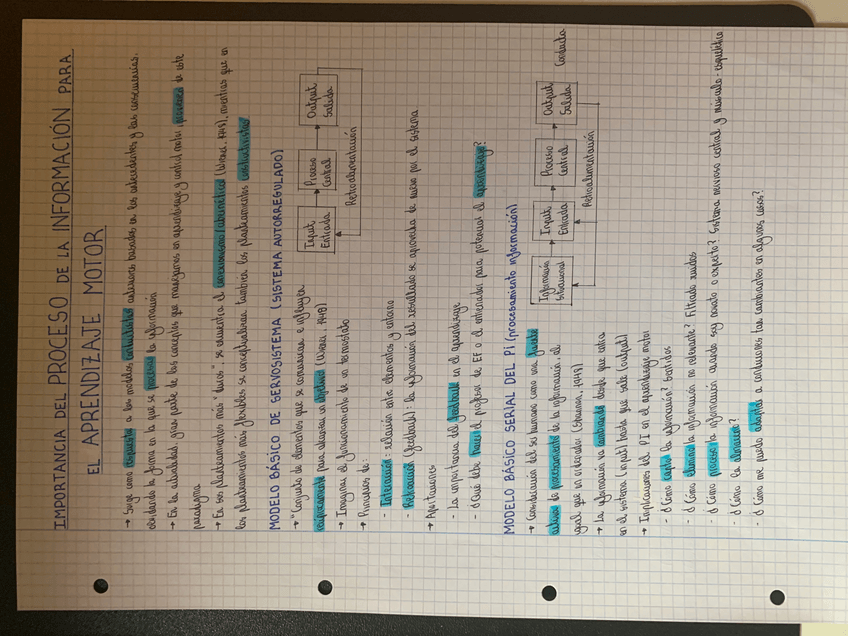 IMPORTANCIA DEL PROCESO DE LA INFORMACIÓN PARA
EL APRENDIZAJE MOTOR
→ Surge como respuesta a los modelos conductistas anteriores basados en los antecedentes y las consecuencias,
olvidando la forma en la que se procesa la información
→ En la actualidad gran parte de los conceptos que manejamos en aprendizaje y control motor, proceden de este
paradigma
→ En sus planteamientos más "duros", se encuentra el conexionismo/cibernética (Wiener, 1948), mientras que en
los planteamientos más flexibles se conceptualizan también los planteamientos constructivistas
MODELO BÁSICO DE SERVOSISTEMA (SISTEMA AUTORREGULADO)
→ "Conjunto de elementos que se comunican e influyen
recíprocamente para alcanzar un objetivo (Wiener, 1948)
→ Imaginar el funcionamiento de un termostato
→ Principios de:
- Interacción: relación entre elementos y entorno
- Retroacción (feedback): la información del resultado se aprovecha de nuevo por el sistema
→ Aportaciones
- La importancia del feedback en el aprendizaje
- ¿Qué debe hacer el profesor de EF o el entrenador para potenciar el aprendizaje?
Input
Entrada
Proceso
Central
Output
Salida
Retroalimentación
MODELO BÁSICO SERIAL DEL PI (procesamiento información)
→ Consideración del ser humano como una fuente
activa de procesamiento de la información, al
igual que un ordenador (Shannon, 1948)
→ La información va cambiando desde que entra
en el sistema (input) hasta que sale (output)
→ Implicaciones del PI en el aprendizaje motor
- ¿Cómo capto la información? Sentidos
- ¿Cómo elimino la información no relevante? Filtrado ruidos
- ¿Cómo proceso la información cuando soy novato o experto? Sistema nervioso central y músculo-esquelético
- ¿Cómo la almaceno?
- ¿Cómo me puedo adaptar a condiciones tan cambiantes en algunos casos?
Información
Situacional
Input
Entrada
Proceso
Central
Output
Salida
Conducta
Retroalimentación